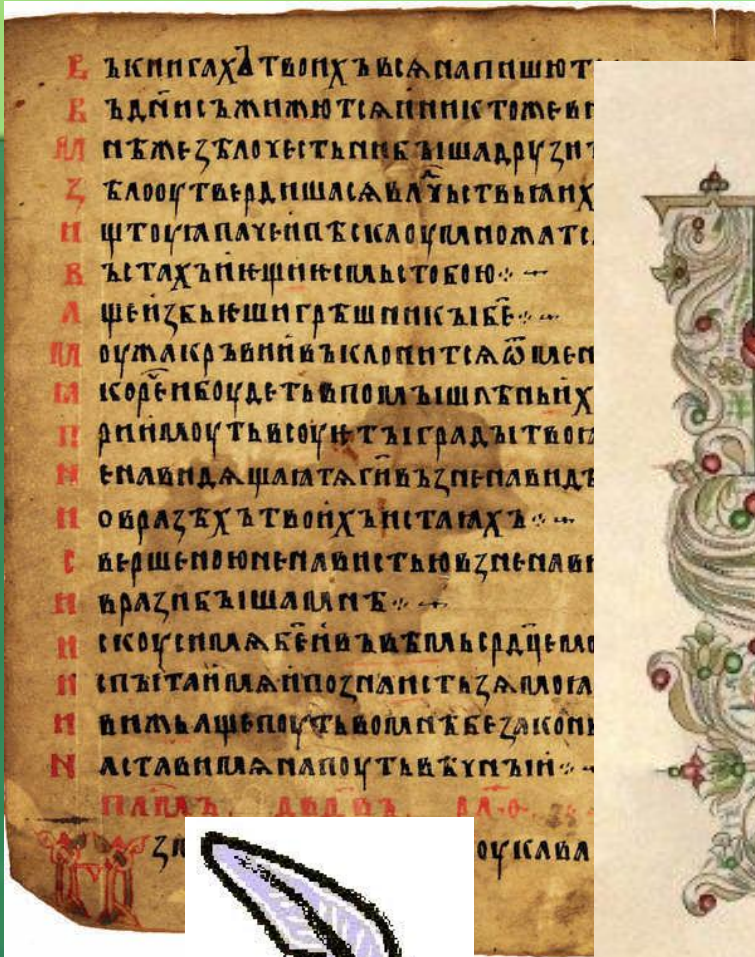 В ъкнигахътвоихъвсѧнапишют
В ъдн҃исъжижютсѧиниктожевн
М нѣжеզѣлочестьнибꙑшадрузи
З ѣлооутвердишасѧвлч҃ьствьꙗих
И штоуꙗпачеипѣскаоумножатс
В ъстахъиѥщиѥсмьстобою჻ —
А щеизбьѥшигрѣшникꙑб҃е჻ —
М оужакръвиивъклонитсѧѿмен
Ꙗ коренибоудетьвпомꙑшлѣньих
П риимоутьвсоуѥтꙑградꙑтвоꙗ
Н енавидѧщаꙗтѧг҃ивъзненавидѣ
И образѣхътвоихъистаꙗхъ჻ —
С вершеноюненавистьювзненави
И вразибꙑшамнѣ჻ —
И скоусимѧб҃еивъвѣмьсрдⷰемо
И спꙑтаимѧипознаистьзѧмоꙗ
И вижьащепоутьвомнѣбезакон
Н аставимѧнапоутьвѣчнꙑи჻
дв҃двъ рл҃ѳ
оукава